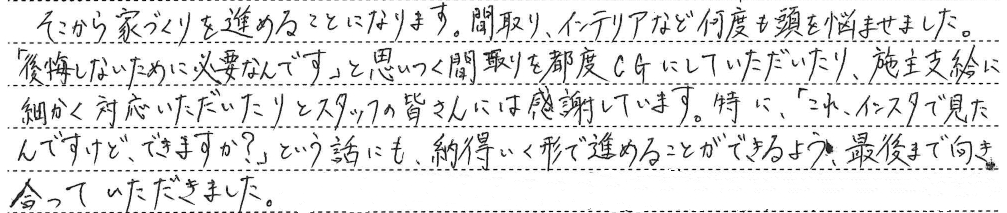 そこから家づくりを進めることになります。間取り、インテリアなど何度も頭を悩ませました。
「後悔しないために必要なんです」と思いつく間取りを都度CGにしていただいたり、施主支給に
細かく対応いただいたりとスタッフの皆さんには感謝しています。特に、「これ、インスタで見た
んですけど、できますか?」という話にも、納得いく形で進めることができるよう、最後まで向き
合っていただきました。